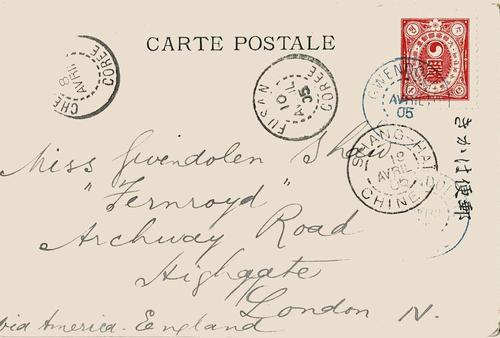 CARTE POSTALE
CHE
8
AVRIL
COREE
FUSAN
10
AVRIL
05
COREE
GWENDOLEN
AVRIL
05
SHANG-HAI
12
AVRIL
05
CHINE
きかは便郵
Miss Gwendolen Shaw
"Fernroyd"
Archway Road
Highgate
London N.
via America. England